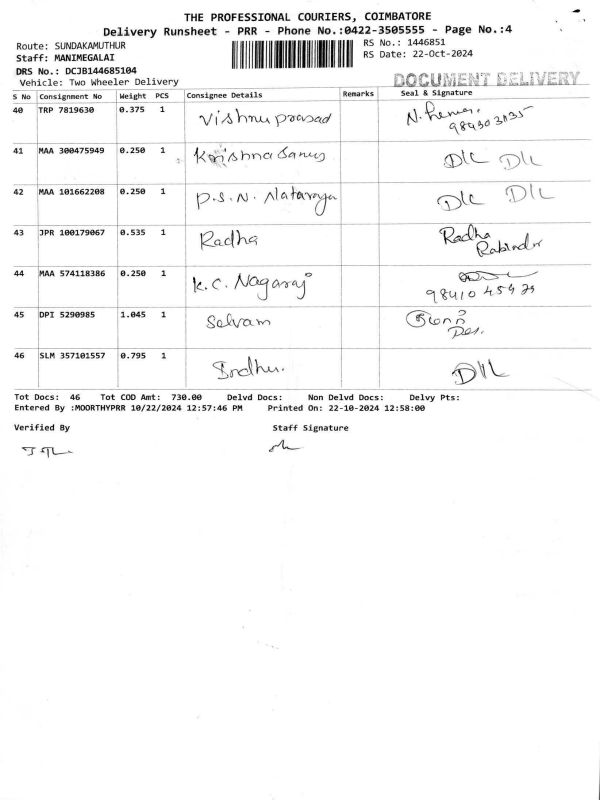 THE PROFESSIONAL COURIERS, COIMBATORE
Delivery Runsheet - PRR - Phone No.:0422-3505555 - Page No.:4
Route: SUNDAKAMUTHUR
RS No.: 1446851
Staff: MANIMEGALAI
RS Date: 22-Oct-2024
DRS No.: DCJB144685104
Vehicle: Two Wheeler Delivery
DOCUMENT DELIVERY
S No Consignment No Weight PCS Consignee Details Remarks Seal & Signature
40 TRP 7819630 0.375 1 Vishnu prasad
41 MAA 300475949 0.250 1 D/L D/L
42 MAA 101662208 0.250 1 P.S.N. Nataraja D/L D/L
43 JPR 100179067 0.535 1 Radha Radha
44 MAA 574118386 0.250 1 K.C. Nagaraj
45 DPI 5290985 1.045 1 Selvam
46 SLM 357101557 0.795 1 D/L
Tot Docs: 46 Tot COD Amt: 730.00 Delvd Docs: Non Delvd Docs: Delvy Pts:
Entered By :MOORTHYPRR 10/22/2024 12:57:46 PM Printed On: 22-10-2024 12:58:00
Verified By Staff Signature